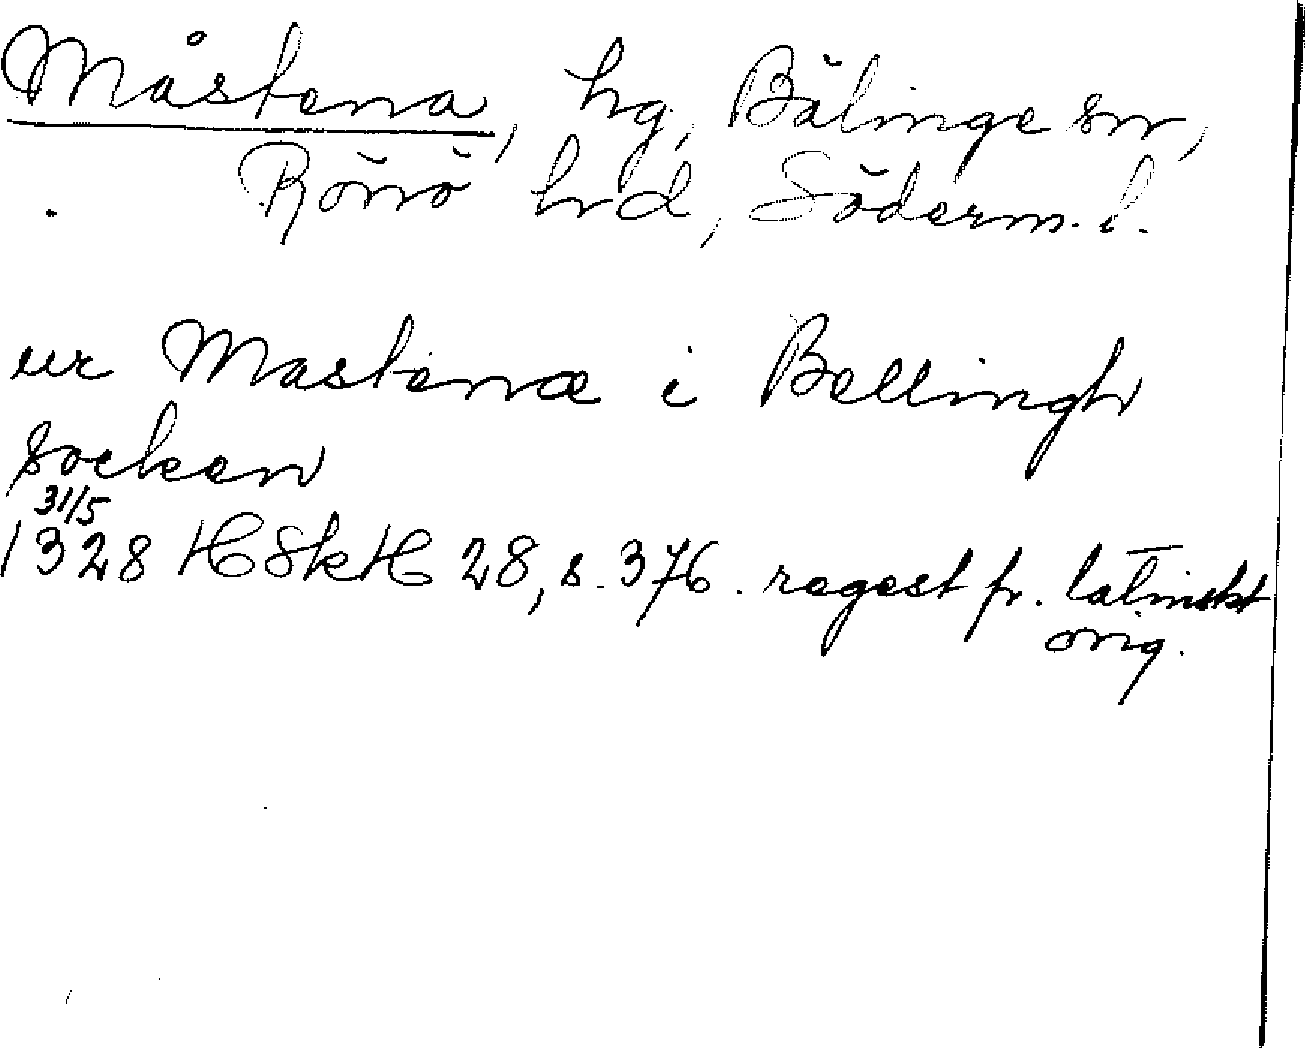 Måstena, hg, Bälinge sn,
Rönö hrd, Söderm. l.
ur Mastenæ i Bellingh
socken
31/5
1328 HSkH 28, s. 376. regest fr. latinskt
orig.